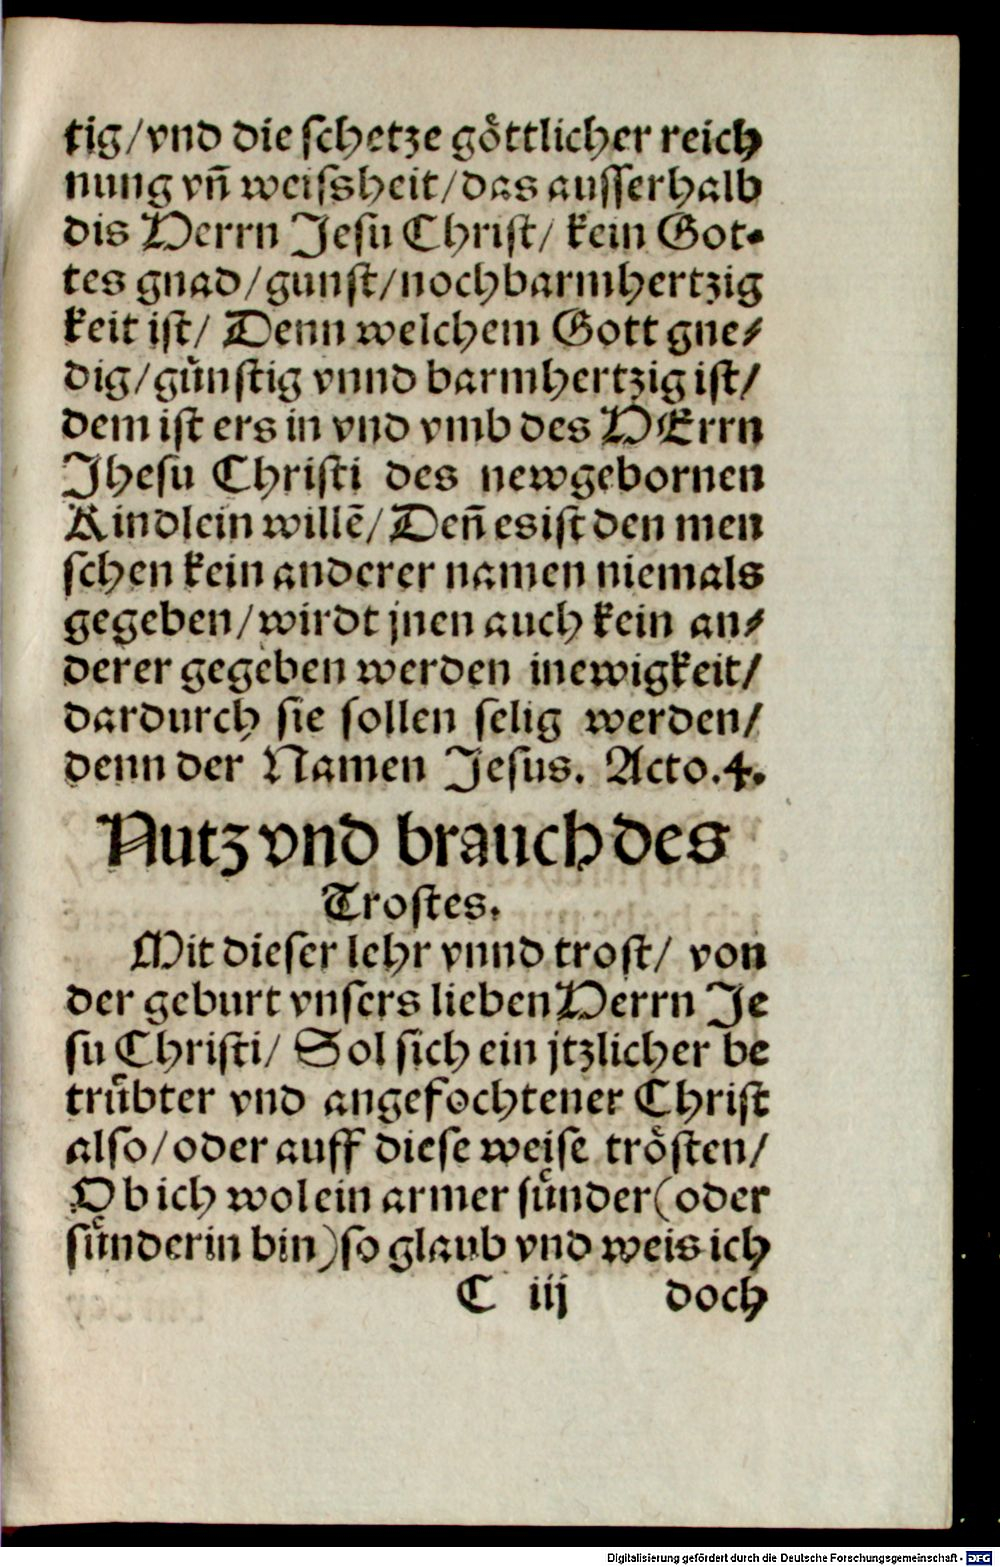 tig/vnd die ſchetze goͤttlicher reich
nung vñ weiſsheit/das auſſerhalb
dis Herrn Jeſu Chriſt/ kein Got⸗
tes gnad/gunſt/noch barmhertzig
keit iſt/ Denn welchem Gott gne⸗
dig/guͤnſtig vnnd barmhertzig iſt/
dem iſt ers in vnd vmb des HErrn
Jheſu Chriſti des newgebornen
Kindlein willē/ Deñ es iſt den men
ſchen kein anderer namen niemals
gegeben/wirdt jnen auch kein an⸗
derer gegeben werden inewigkeit/
dardurch ſie ſollen ſelig werden/
denn der Namen Jeſus. Acto.4.
Nutz vnd brauch des
Troſtes.
Mit dieſer lehr vnnd troſt/ von
der geburt vnſers lieben Herrn Je
ſu Chriſti/ Sol ſich ein jtzlicher be
truͤbter vnd angefochtener Chriſt
alſo/oder auff dieſe weiſe troͤſten/
Ob ich wol ein armer ſuͤnder(oder
ſuͤnderin bin)ſo glaub vnd weis ich
C iij doch
Digitalisierung gefördert durch die Deutsche Forschungsgemeinschaft - DFG